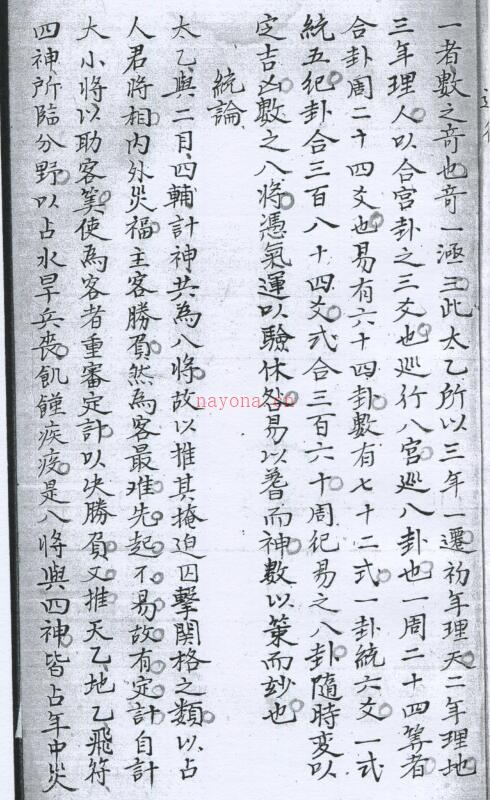 一者數之竒也竒一涵三此太乙所以三年一遷初年理天二年理地
三年理人以合宫卦之三爻也廵行八宫廵八卦也一周二十四筭者
合卦周二十四爻也易有六十四卦數有七十二式一卦統六爻一式
統五紀卦合三百八十四爻式合三百六十周紀易之八卦隨時変以
定吉凶數之八將憑氣運以驗休咎易以蓍而神數以策而妙也
統論
太乙與二目四輔計神共為八將故以推其掩迫囚擊関格之類以占
人君將相内外災福主客勝負然為客最难先起不易故有定計自計
大小將以助客筭使為客者重審定計以决勝負又推天乙地乙飛符
四神所臨分野以占水旱兵喪飢饉疾疫是八將與四神皆占年中災
nayona.cn